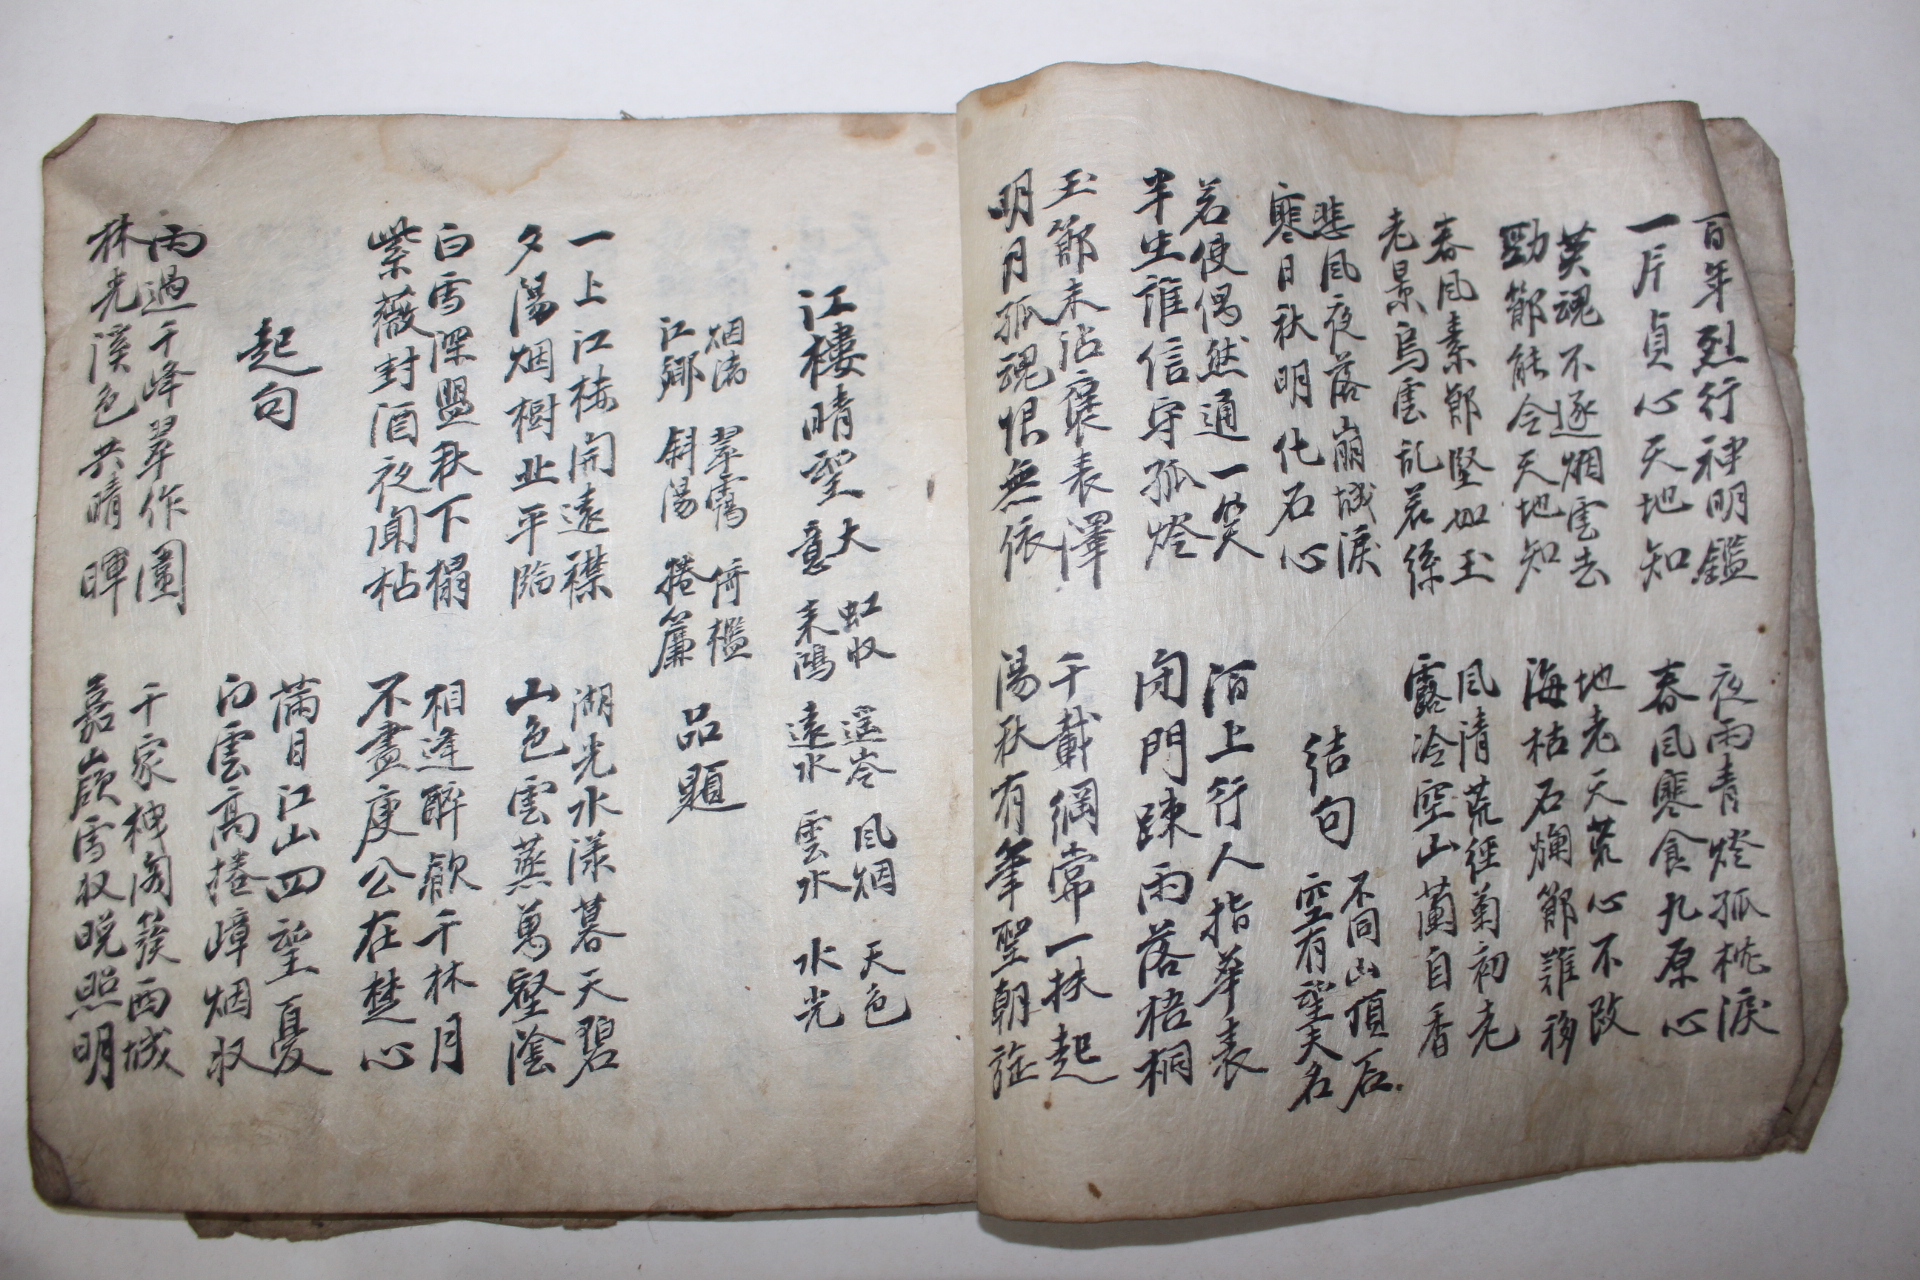 百年烈行神明鑑
一片貞心天地知
夜雨青燈孤枕淚
春風寒食九原心
英魂不逐烟雲去
勁節能令天地知
地老天荒心不改
海枯石爛節難移
春風素節堅如玉
老景烏雲亂若絲
風清荒徑菊初老
露冷空山蘭自香
悲風夜落崩城淚
寒日秋明化石心
結句
不同山頂石
空有望夫名
若使偶然通一笑
半生誰信守孤燈
陌上行人指華表
閉門踈雨落梧桐
玉節未沾褒表澤
明月孤魂恨無依
千載綱常一扶起
湯秋有筆聖朝旌
江樓晴望
大意
虹收 遥岑 風烟 天色
来鴻 遠水 雲水 水光
烟浦 翠靄 倚檻
江鄉 斜陽 捲簾
品題
一上江楼開遠襟
夕陽烟樹正平臨
湖光水漾暮天碧
山色雲蒸萬壑陰
白雪深盟秋下榻
紫薇封酒夜聞枯
相逢醉歡千林月
不盡庾公在楚心
起句
滿目江山四望憂
白雲高捲嶂烟收
雨過千峰翠作圍
林光溪色共晴暉
千家樓閣簇西城
嘉嶺雪收晚照明